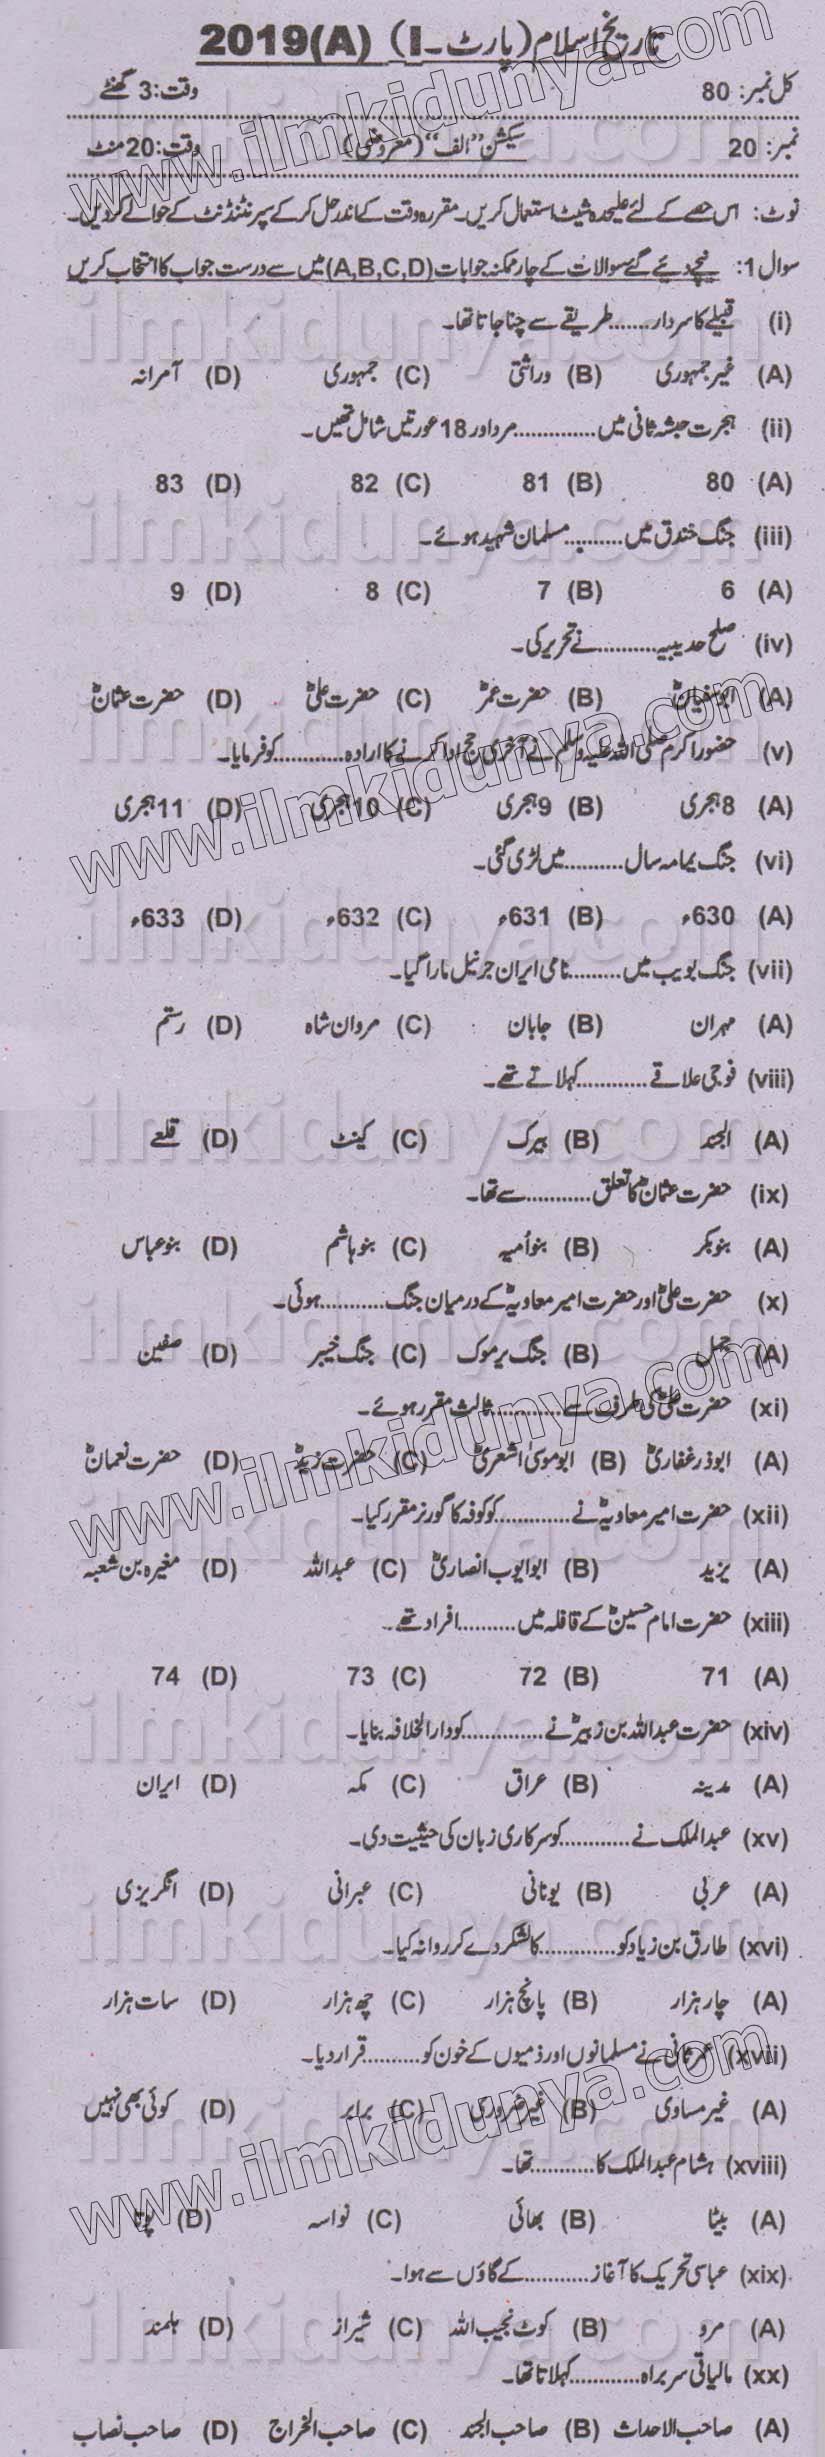 تاریخ اسلام (پارٹ۔I) 2019(A)
کل نمبر: 80 وقت: 3 گھنٹے
نمبر: 20 سیکشن "الف" (معروضی) وقت: 20 منٹ
نوٹ: اس حصے کے لئے علیحدہ شیٹ استعمال کریں۔ مقررہ وقت کے اندر حل کر کے سپرنٹنڈنٹ کے حوالے کر دیں۔
سوال 1: نیچے دیئے گئے سوالات کے چار ممکنہ جوابات (A,B,C,D) میں سے درست جواب کا انتخاب کریں
(i) قبیلے کا سردار....... طریقے سے چنا جاتا تھا۔
(A) غیر جمہوری (B) وراثتی (C) جمہوری (D) آمرانہ
(ii) ہجرت حبشہ ثانی میں.............. مرد اور 18 عورتیں شامل تھیں۔
(A) 80 (B) 81 (C) 82 (D) 83
(iii) جنگ خندق میں.......... مسلمان شہید ہوئے۔
(A) 6 (B) 7 (C) 8 (D) 9
(iv) صلح حدیبیہ........... نے تحریر کی۔
(A) ابوسفیانؓ (B) حضرت عمرؓ (C) حضرت علیؓ (D) حضرت عثمانؓ
(v) حضور اکرم صلی اللہ علیہ وسلم نے آخری حج ادا کرنے کا ارادہ............ کو فرمایا۔
(A) 8 ہجری (B) 9 ہجری (C) 10 ہجری (D) 11 ہجری
(vi) جنگ یمامہ سال.......... میں لڑی گئی۔
(A) 630ء (B) 631ء (C) 632ء (D) 633ء
(vii) جنگ بویب میں......... نامی ایران جرنیل مارا گیا۔
(A) مہران (B) جابان (C) مردان شاہ (D) رستم
(viii) فوجی علاقے............ کہلاتے تھے۔
(A) الجند (B) بیرک (C) کینٹ (D) قلعے
(ix) حضرت عثمانؓ کا تعلق........... سے تھا۔
(A) بنو بکر (B) بنو اُمیہ (C) بنو ہاشم (D) بنو عباس
(x) حضرت علیؓ اور حضرت امیر معاویہؓ کے درمیان جنگ........... ہوئی۔
(A) جمل (B) جنگ یرموک (C) جنگ خیبر (D) صفین
(xi) حضرت علیؓ کی طرف سے............ ثالث مقرر ہوئے۔
(A) ابوذر غفاریؓ (B) ابو موسیٰ اشعریؓ (C) حضرت زیدؓ (D) حضرت نعمانؓ
(xii) حضرت امیر معاویہؓ نے............. کو کوفہ کا گورنر مقرر کیا۔
(A) یزید (B) ابو ایوب انصاریؓ (C) عبداللہ (D) مغیرہ بن شعبہ
(xiii) حضرت امام حسینؓ کے قافلہ میں.......... افراد تھے۔
(A) 71 (B) 72 (C) 73 (D) 74
(xiv) حضرت عبداللہ بن زبیرؓ نے.............. کو دارالخلافہ بنایا۔
(A) مدینہ (B) عراق (C) مکہ (D) ایران
(xv) عبدالملک نے............ کو سرکاری زبان کی حیثیت دی۔
(A) عربی (B) یونانی (C) عبرانی (D) انگریزی
(xvi) طارق بن زیاد کو............. کا لشکر دے کر روانہ کیا۔
(A) چار ہزار (B) پانچ ہزار (C) چھ ہزار (D) سات ہزار
(xvii) عمر ثانی نے مسلمانوں اور ذمیوں کے خون کو.......... قرار دیا۔
(A) غیر مساوی (B) غیر ضروری (C) برابر (D) کوئی بھی نہیں
(xviii) ہشام عبدالملک کا........... تھا۔
(A) بیٹا (B) بھائی (C) نواسہ (D) پوتا
(xix) عباسی تحریک کا آغاز........... کے گاؤں سے ہوا۔
(A) مرو (B) کوٹ نجیب اللہ (C) شیراز (D) ہلمند
(xx) مالیاتی سربراہ............ کہلاتا تھا۔
(A) صاحب الاحداث (B) صاحب الجند (C) صاحب الخراج (D) صاحب نصاب